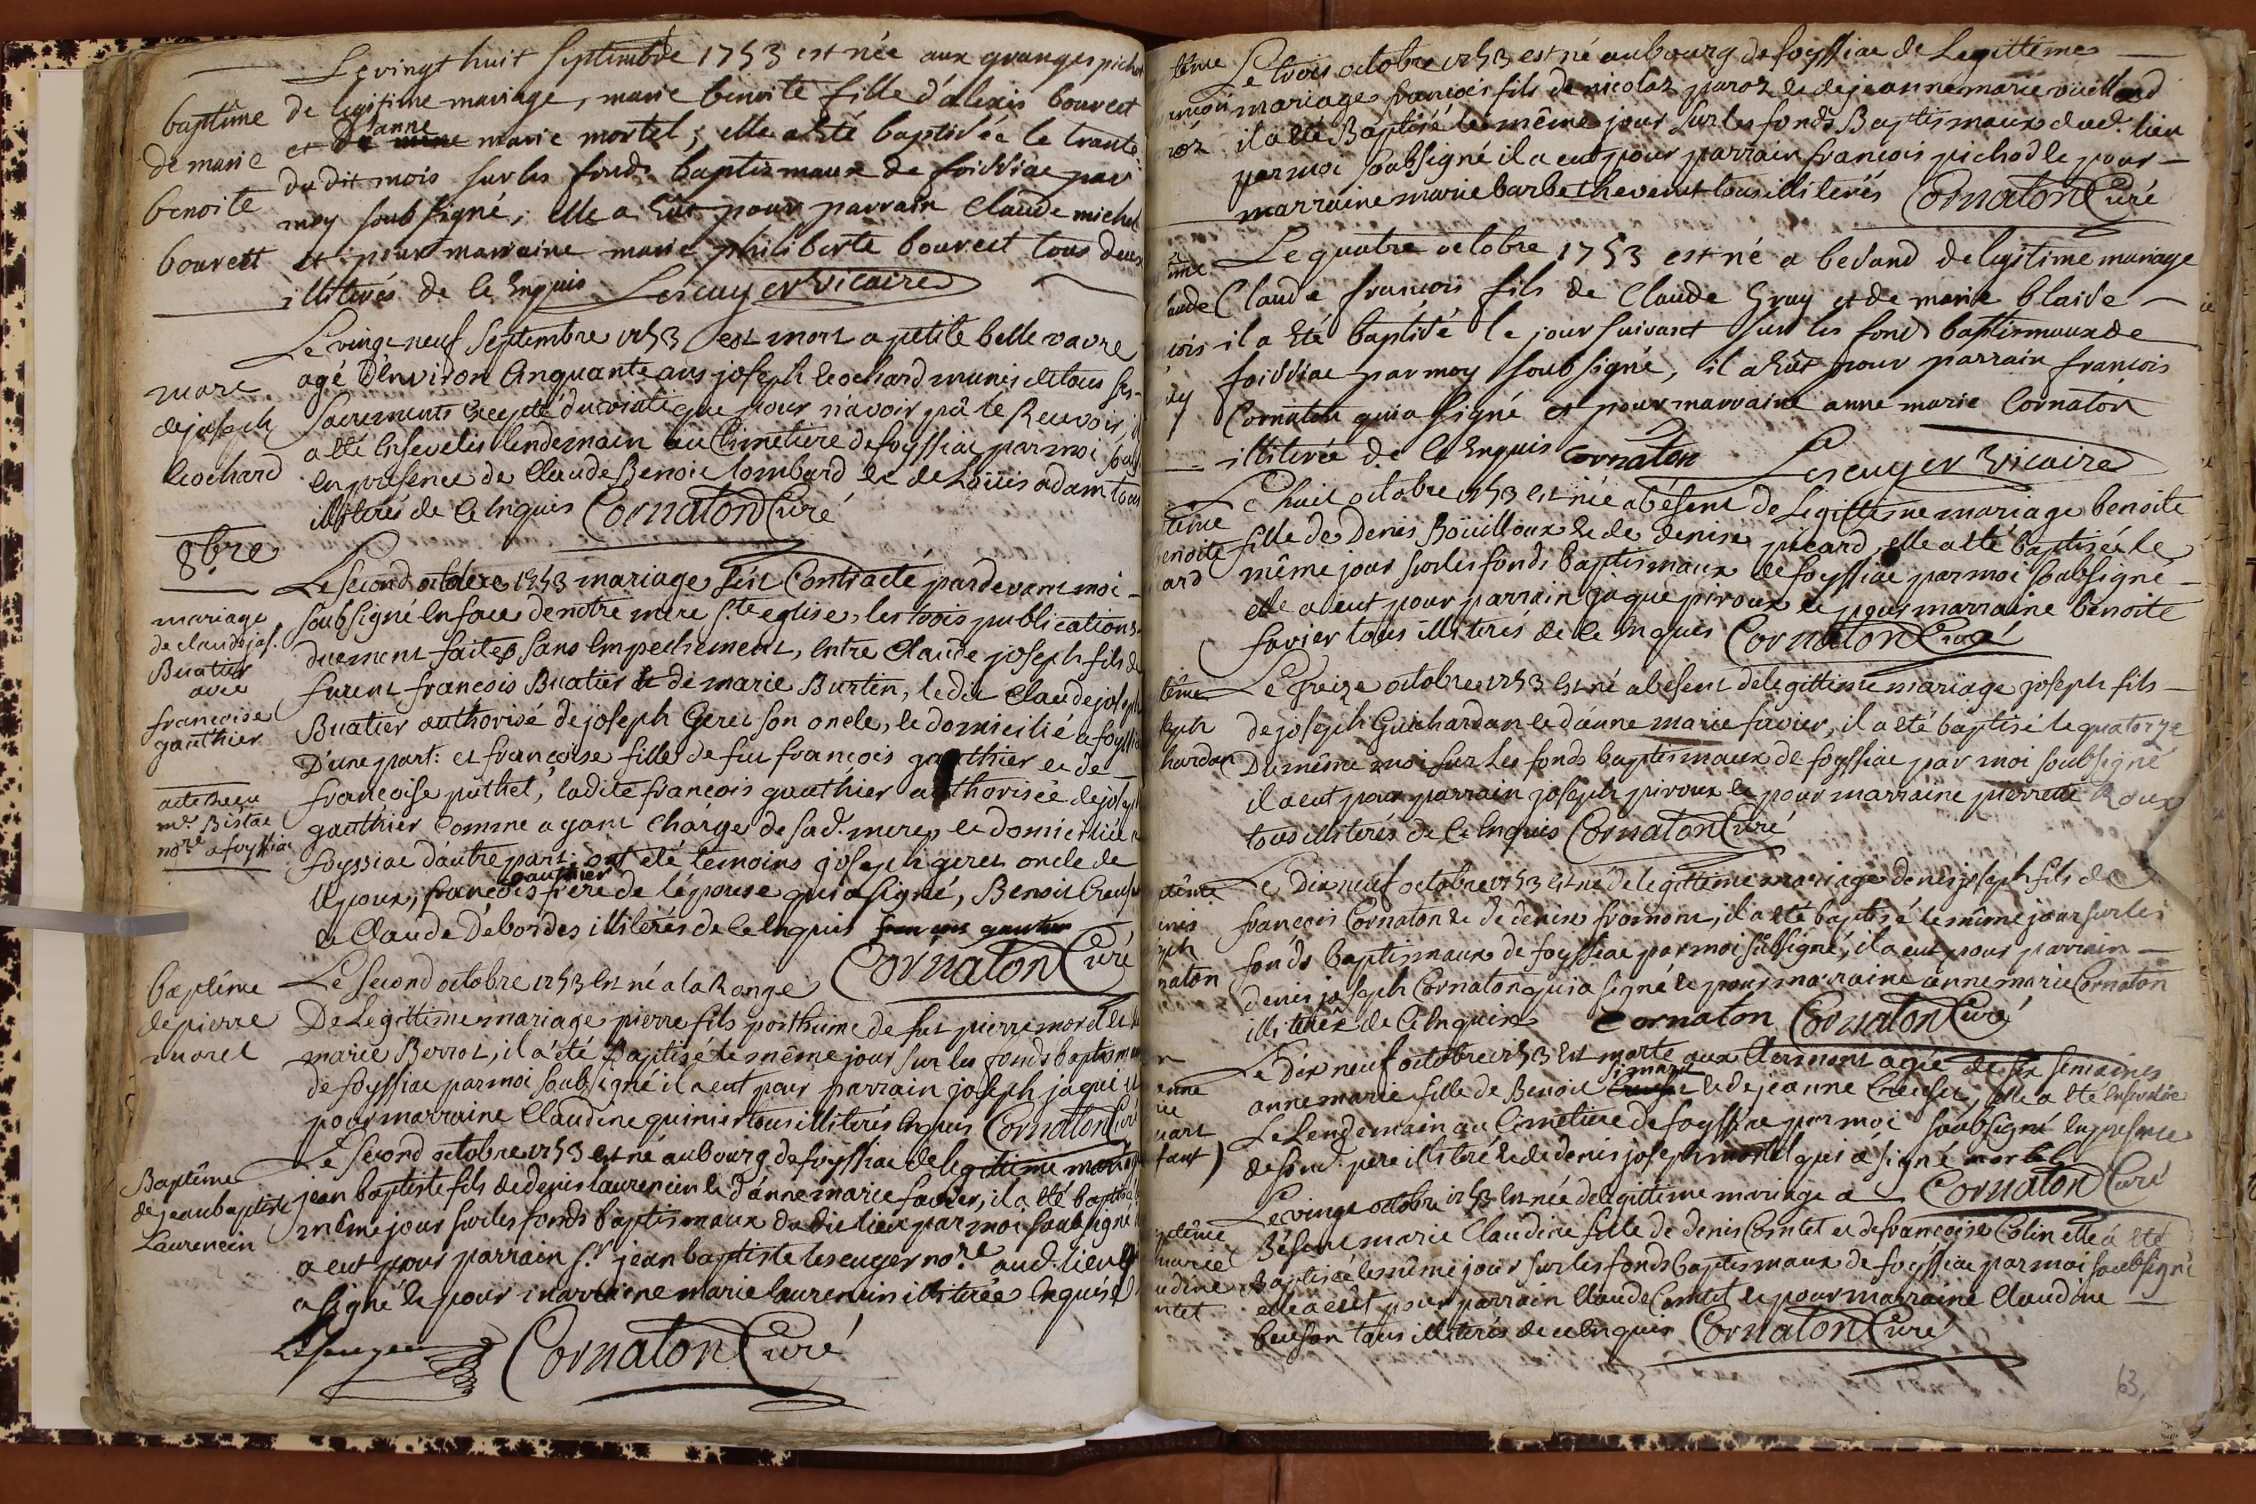 Le vingt huit Septembre 1753 est née aux granges
baptême de legitime mariage, marie benoite fille d'alexis bouvect
et d'anne marie mortel; elle a été baptisée le trante
de marie
du dit mois sur les fonds baptismaux de foissiac par
benoite
moy soubsigné; elle a eût pour parrain Claude michel
bouvect
et pour marraine marie philiberte bouvect tous deux
illiterés de ce enquis Lescuyer vicaire
Le vingt neuf Septembre 1753 est mort a petite belle vavre
mort
agé d'environ Cinquante ans joseph leochard munis de tous ses
de joseph
Sacrements excepté du viatique pour n'avoir pû le Recevoir il
leochard
a été enseveli le lendemain au Cimetiere de foyssiac par moi
en presence de Claude Benoit lombard et de Loüis adam tous
illiterés de ce enquis Cornaton Curé
8bre
Le Second octobre 1753 mariage s'est Contracté pardevant moi
mariage
Soubsigné en face de notre mere ste eglise, les trois publications
de claude jos.
duement faites sans empechement, entre Claude joseph fils de
Buatier
avec
furent francois Buatier et de marie Burtin, le dit Claude joseph
francoise
Buatier authorisé de joseph Geret son oncle, le domicilié a
gauthier
D'une part: et francoise fille de fut francois gauthier et de
acte Recu
francoise puthet, ladite francois gauthier authorisée de joseph
me. Bistac
gauthier Comme ayant Chargé de sad. mere, et domiciliée
nore. a foyssiac
foyssiac d'autre part: ont été temoins joseph geret oncle de
l'epoux, francois gauthier frere de l'epouse qui a signé, Benoit
et Claude Debordes illiterés de ce enquis francois gautier
Cornaton Curé
baptême
Le Second octobre 1753 est né a la Range
de pierre
De Legittime mariage pierre fils posthume de fut pierre morel et
morel
marie Berrot, il a été Baptisé le même jour sur les fonds
de foyssiac par moi Soubsigné il a eut pour parrain joseph
pour marraine Claudine quinier tous illiterés enquis Cornaton Curé
Baptême
Le Second octobre 1753 est né au bourg de foyssiac de legitieme
de jean baptiste
jean baptiste fils de denis laurencin et d'anne marie favier, il a été
Laurencin
même jour sur les fonds baptismaux du dit lieu par moi Soubsigné
a eut pour parrain Sr. jean baptiste lescuyer nore. aud. lieu
a signé et pour marraine marie laurencin illiterée enquise
Lescuyer Cornaton Curé
Le trois octobre 1753 est né au bourg de foyssiac de Legittime
mariage francois fils de nicolas paroz et de jeanne marie
il a été Baptisé le même jour sur les fonds Baptismaux dud. lieu
par moi Soubsigné il a eut pour parrain francois pichod et pour
marraine marie barbe thevenet tous illiterés Cornaton Curé
Le quatre octobre 1753 est né a besand de legitime mariage
Claude francois fils de Claude Gruy et de marie blaise
il a été baptisé le jour suivant sur les fonds baptismaux de
foissiac par moy soubsigné, il a eût pour parrain francois
Cornaton qui a signé et pour marraine anne marie Cornaton
illiterée de ce enquis Cornaton Lescuyer Vicaire
Le huit octobre 1753 est née a bésent de Legittime mariage benoite
fille de Denis Boüilloux et de denise picard, elle a été baptisée le
même jour sur les fonds baptismaux de foyssiac par moi Soubsigné
elle a eut pour parrain jaque piroux et pour marraine benoite
favier tous illiterés de ce enquis Cornaton Curé
Le Treize octobre 1753 est né a bésent de legittime mariage joseph fils
de joseph Guichardan et d'anne marie favier, il a été baptisé le quatorze
Du même moi sur les fonds baptismaux de foyssiac par moi soubsigné
il a eut pour parrain joseph piroux et pour marraine pierrette Roux
tous illiterés de ce enquis Cornaton Curé
Le Dix neuf octobre 1753 est né de legittime mariage denis joseph fils de
francois Cornaton et de denise fromont, il a été baptisé le même jour sur les
fonds baptismaux de foyssiac par moi subsigné, il a eut pour parrain
denis joseph Cornaton qui a signé et pour marraine anne marie Cornaton
illiterée de ce enquise Cornaton Cornaton Curé
Le Dix neuf octobre 1753 est morte aux Clermont agée de six semaines
anne marie fille de Benoit simard et de jeanne Creuset, elle a été ensevelie
Le Lendemain au Cimetiere de foyssiac par moi soubsigné en presence
de son d. pere illiteré et de denis joseph mortel qui a signé mortel
Cornaton Curé
Le vingt octobre 1753 est née de legittime mariage a
Bésent marie Claudine fille de denis Comtet et de francoise Colin elle a été
Baptisée le même jour sur les fonds baptismaux de foyssiac par moi soubsigné
elle a eût pour parrain Claude Comtet et pour marraine Claudine
tous illiterés de ce enquis Cornaton Curé
63,